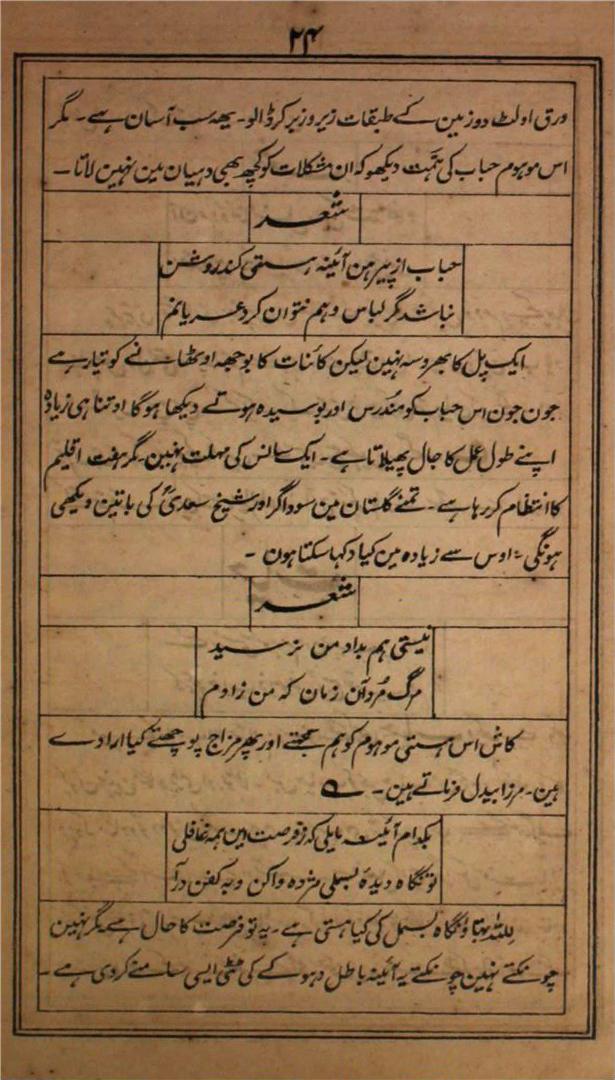 ۲۴
ورق اولٹ دو زمین کے طبقات زیر وزبر کر ڈالو۔ یہہ سب آسان ہے۔ مگر
اس موہوم حباب کی ہمّت دیکھو کہ ان مشکلات کو کچھ بھی دہیان مین نہین لاتا۔
شعر
حباب از پیرہن آئینہ ہستی کند روشن
نباشد گر لباس وہم نتوان کرد عریانم
ایک پل کا بھروسہ نہین لیکن کائنات کا بوجھہ اوٹھانے کو تیار ہے
جون جون اس حباب کو مندرس اور بوسیدہ ہوتے دیکھا ہوگا اوتنا ہی زیادہ
اپنے طول عمل کا جال پھیلاتا ہے۔ ایک سانس کی مہلت نہین۔ مگر ہفت اقلیم
کا انتظام کر رہا ہے۔ تمنے گلستان مین سوداگر اور شیخ سعدیؒ کی باتین دیکھی
ہونگی۔ اوس سے زیادہ مین کیا دکہا سکتا ہون۔
شعر
نیستی ہم بداد من نرسید
مرگ مرد آن زمان کہ من زادم
کاش اس ہستی موہوم کو ہم سمجھتے اور پھر مزاج پوچھتے کیا ارادے
ہین۔ مرزا بیدل فرماتے ہین۔ ؎
بکدام آئینہ مایلی کہ ز فرصت این ہمہ غافلی
تو نگاہ دیدۂ بسملی مژہ واکن و بہ کفن درآ
للہ بتاؤ نگاہ بسمل کی کیا ہستی ہے۔ یہ تو فرصت کا حال ہے مگر نہین
چونکتے نہین چونکتے یہ آئینہ باطل دہوکے کی ٹٹی ایسی سامنے کر دی ہے۔